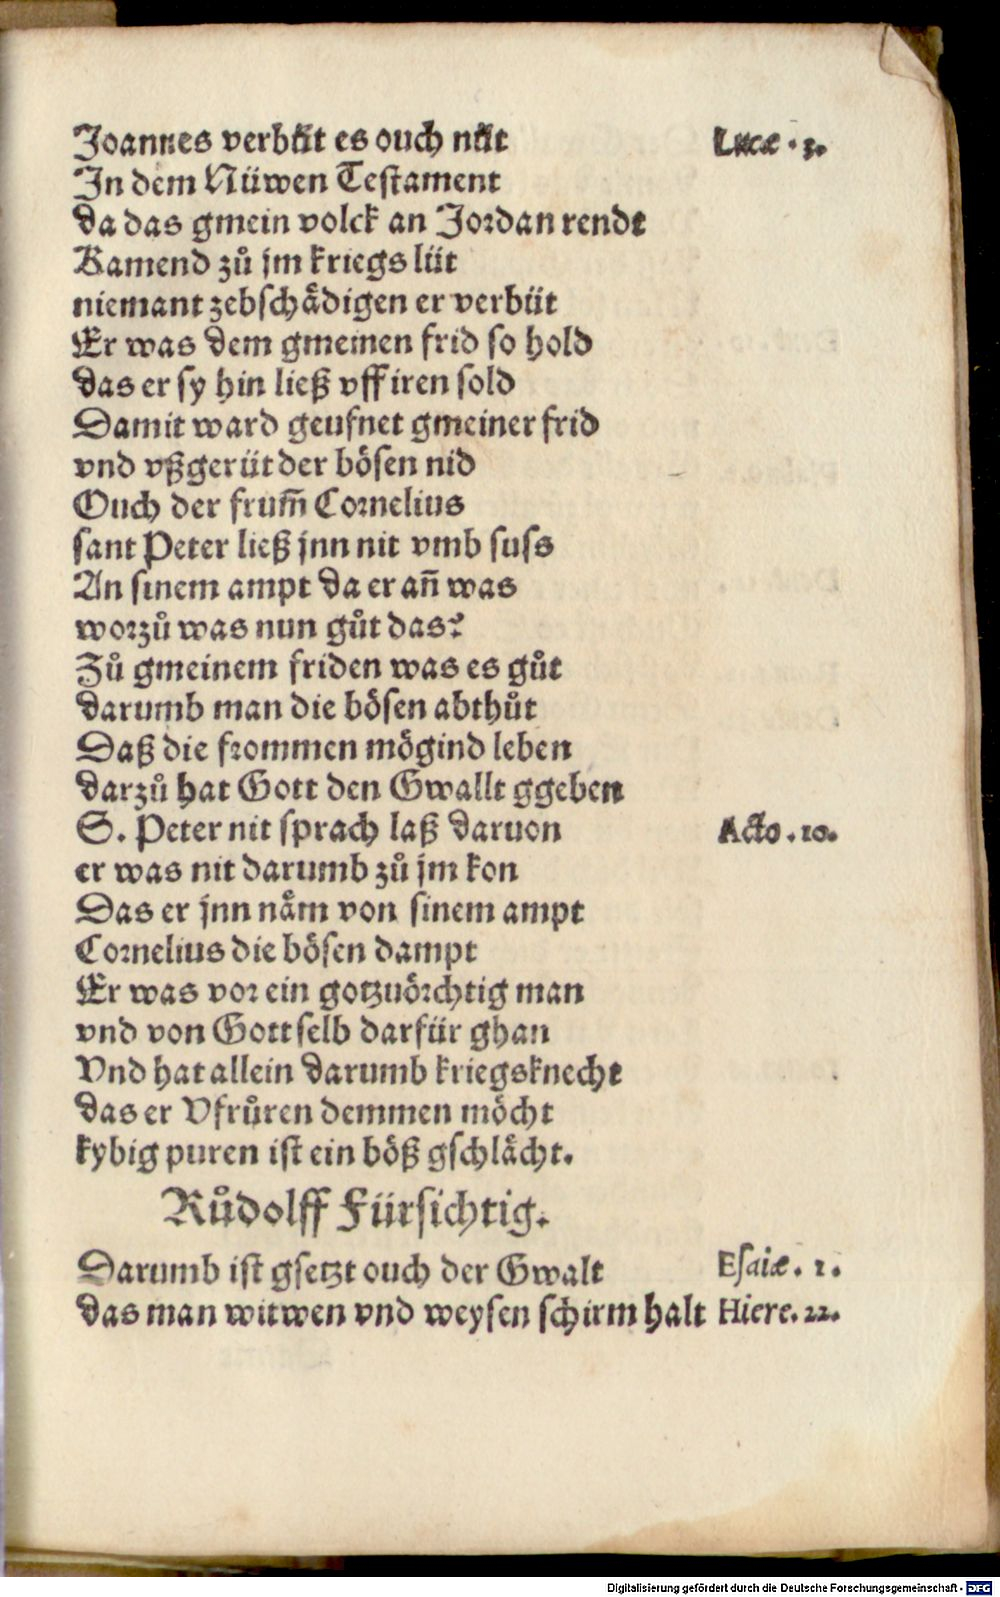 Joannes verbüt es ouch nüt Lucæ . 3.
In dem Nüwen Testament
da das gmein volck an Jordan rendt
Kamend zů jm kriegs lüt
niemant zebschådigen er verbüt
Er was dem gmeinen frid so hold
das er sy hin ließ vff iren sold
Damit ward geufnet gmeiner frid
vnd vßgerüt der bösen nid
Ouch der frum̃ Cornelius
sant Peter ließ jnn nit vmb suss
An sinem ampt da er an̄ was
worzů was nun gůt das?
Zů gmeinem friden was es gůt
darumb man die bösen abthůt
Daß die frommen mögind leben
darzů hat Gott den Gwallt ggeben
S. Peter nit sprach laß daruon Acto . 10.
er was nit darumb zů jm kon
Das er jnn nåm von sinem ampt
Cornelius die bösen dampt
Er was vor ein gotzuörchtig man
vnd von Gott selb darfür ghan
Vnd hat allein darumb kriegsknecht
das er Vfrůren demmen möcht
kybig puren ist ein böß gschlåcht.
Růdolff Fürsichtig.
Darumb ist gsetzt ouch der Gwalt Esaiæ . 1 .
das man witwen vnd weysen schirm halt Hiere. 22.
Digitalisierung gefördert durch die Deutsche Forschungsgemeinschaft - DFG